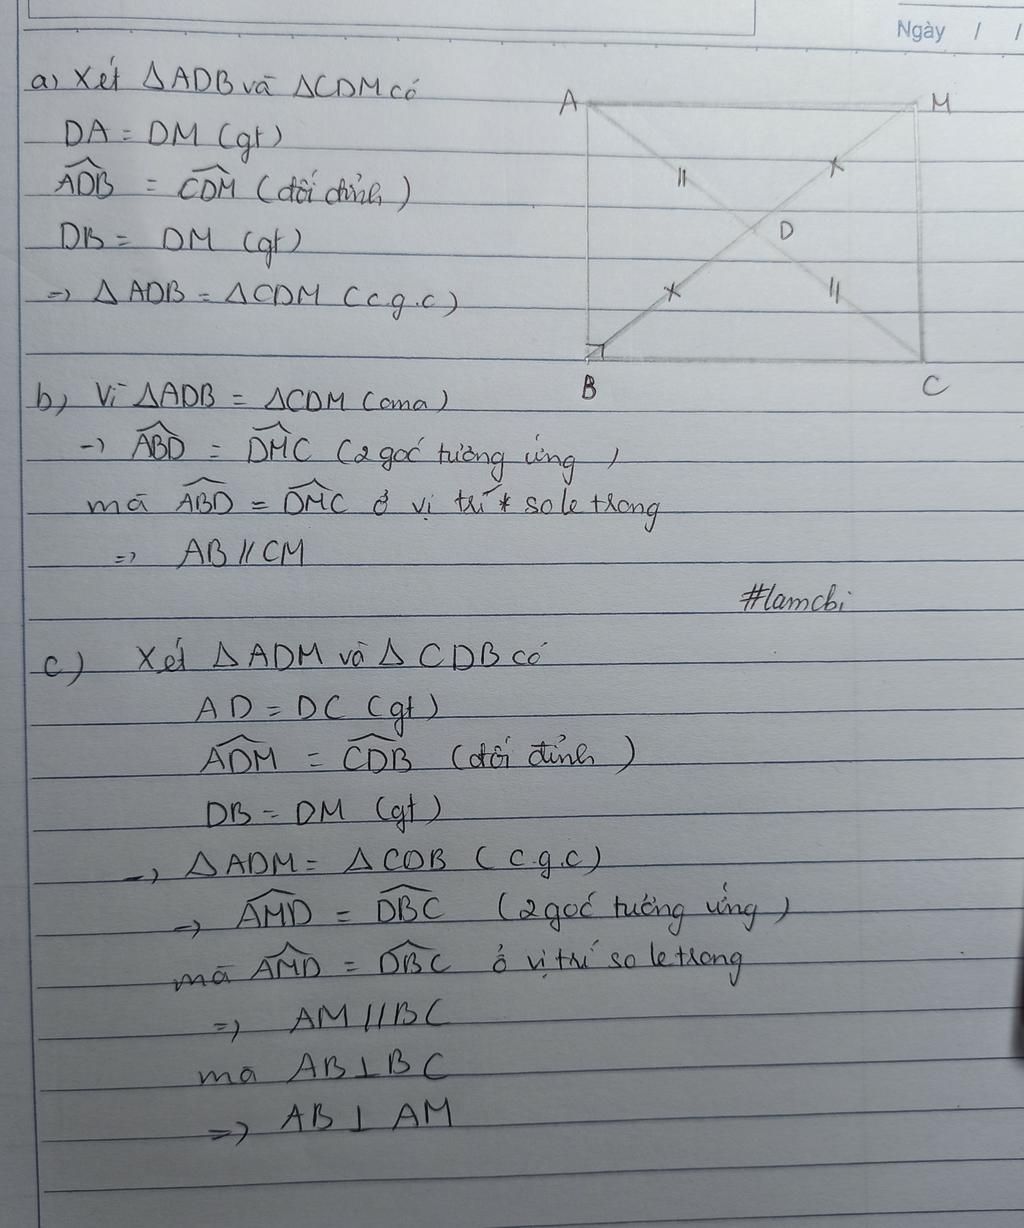 Ngày / /
a) Xét ΔADB và ΔCDM có
DA = DM (gt)
ADB = CDM (đối đỉnh)
DB = DM (gt)
=> ΔADB = ΔCDM (c.g.c)
A
M
D
B
C
b) Vì ΔADB = ΔCDM (cma)
-> ABD = DMC (2 góc tương ứng)
mà ABD = DMC ở vị trí so le trong
=> AB // CM
#lamchi
c) Xét ΔADM và ΔCDB có
AD = DC (gt)
ADM = CDB (đối đỉnh)
DB = DM (gt)
-> ΔADM = ΔCDB (c.g.c)
-> AMD = DBC (2 góc tương ứng)
mà AMD = DBC ở vị trí so le trong
=> AM // BC
mà AB ⊥ BC
=> AB ⊥ AM